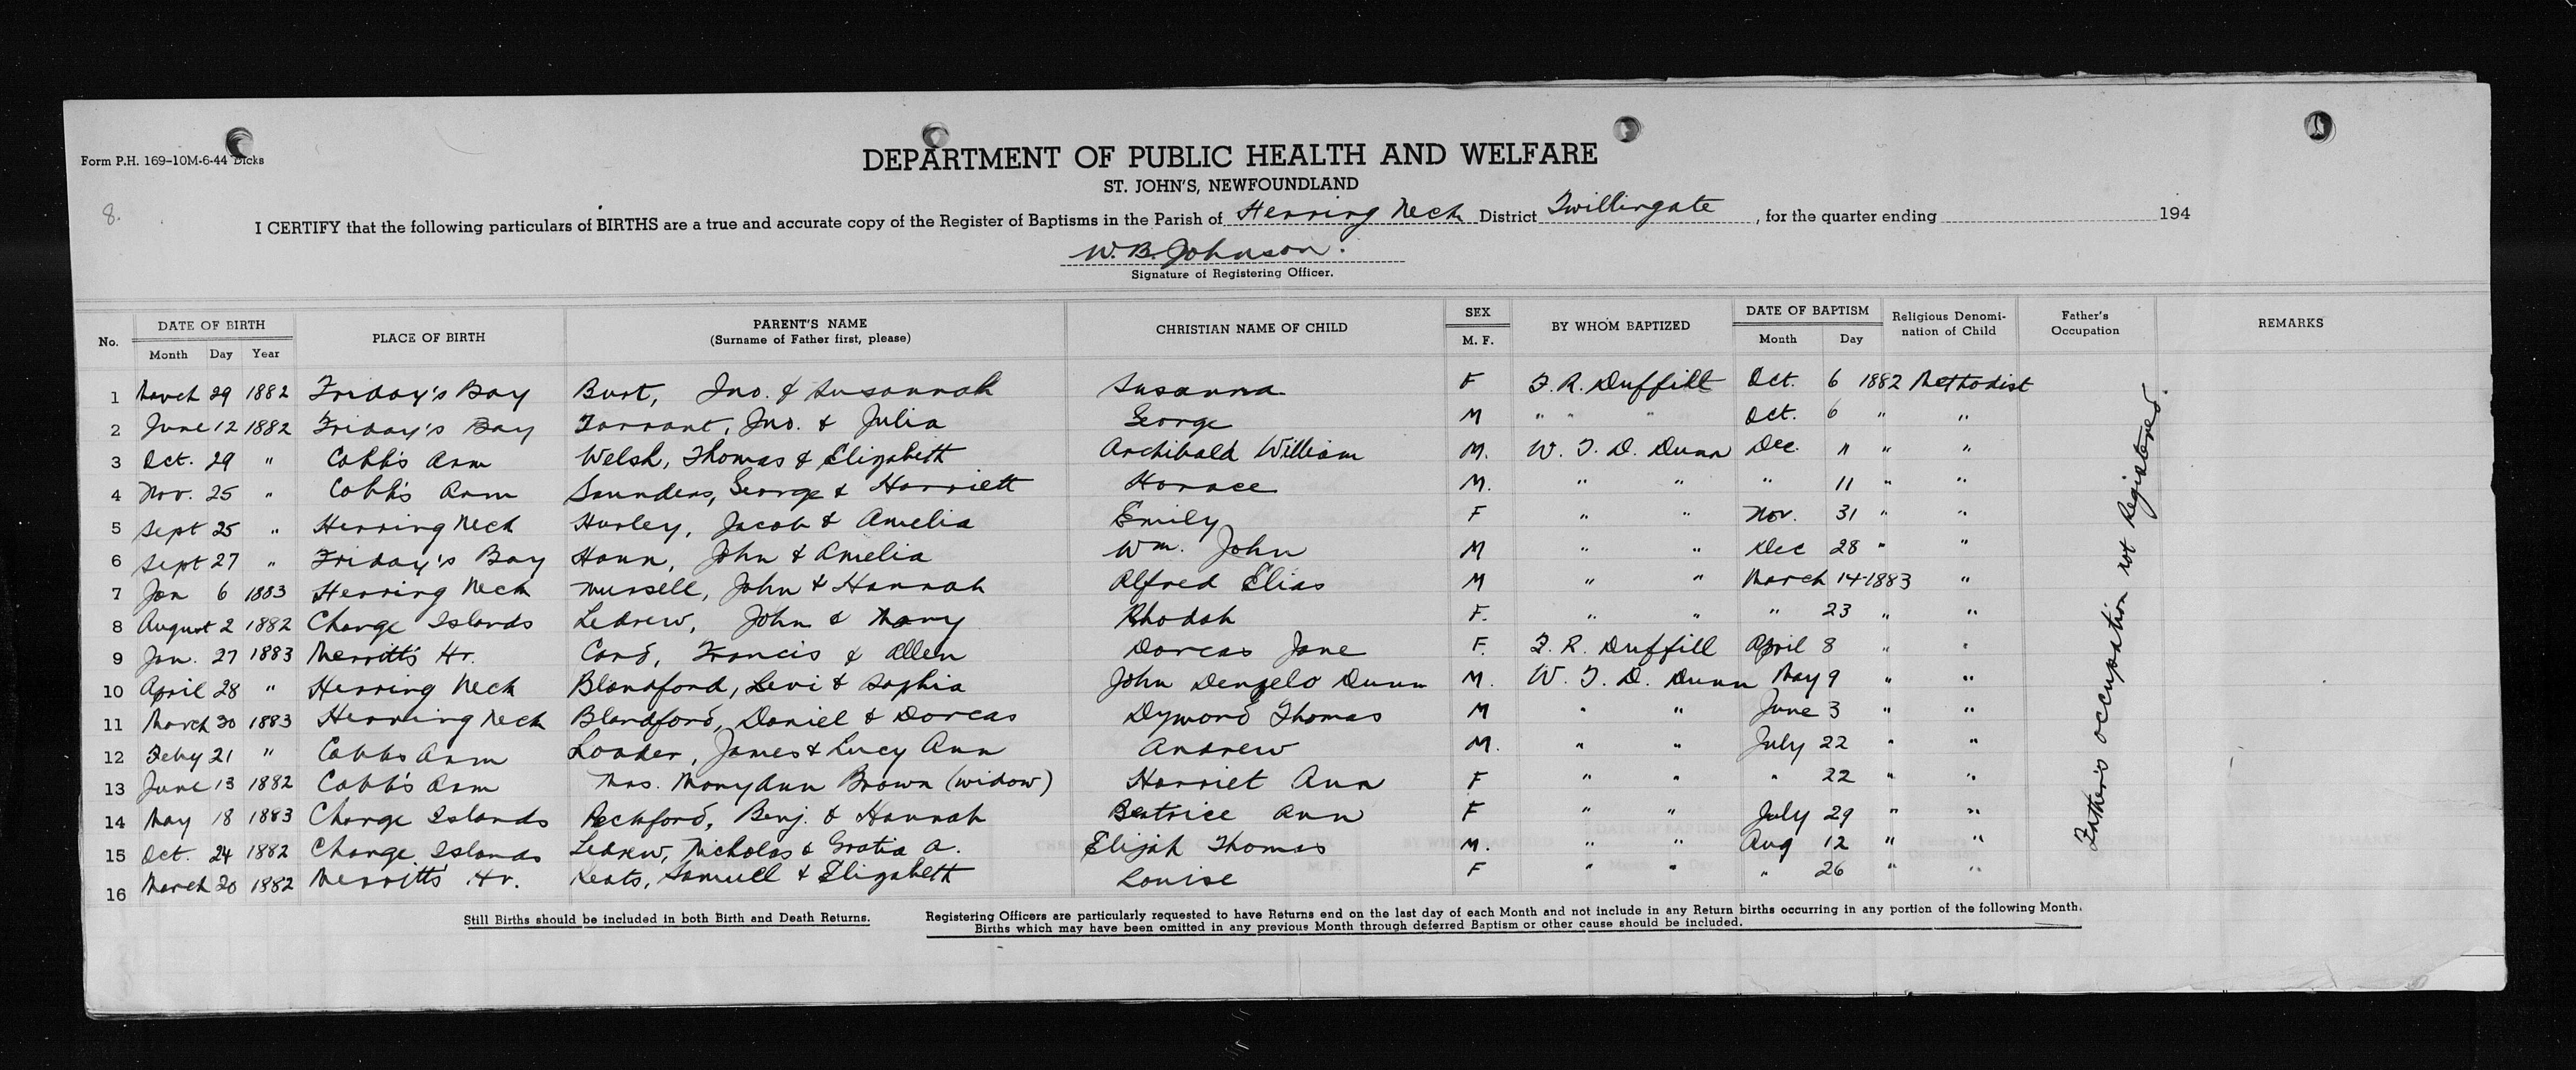 Form P.H. 169-10M-6-44 Dicks
DEPARTMENT OF PUBLIC HEALTH AND WELFARE
ST. JOHN'S, NEWFOUNDLAND
8.
I CERTIFY that the following particulars of BIRTHS are a true and accurate copy of the Register of Baptisms in the Parish of Herring Neck District Twillingate, for the quarter ending 194
W. B. Johnson.
Signature of Registering Officer.
No. DATE OF BIRTH PLACE OF BIRTH PARENT'S NAME CHRISTIAN NAME OF CHILD SEX BY WHOM BAPTIZED DATE OF BAPTISM Religious Denomi-nation of Child Father's Occupation REMARKS
Month Day Year (Surname of Father first, please) M. F. Month Day
1 March 29 1882 Friday's Bay Burt, Jno. & Susannah Susanna F F. R. Duffill Oct. 6 1882 Methodist
2 June 12 1882 Friday's Bay Tarrant, Jno. & Julia George M " " " Oct. 6 " "
3 Oct. 29 " Cobb's Arm Welsh, Thomas & Elizabeth Archibald William M. W. T. D. Dunn Dec. " " "
4 Nov. 25 " Cobb's Arm Saunders, George & Harriett Horace M. " " " 11 " "
5 Sept 25 " Herring Neck Hurley, Jacob & Amelia Emily F " " Nov. 31 " "
6 Sept 27 " Friday's Bay Hann, John & Amelia Wm. John M " " Dec 28 " "
7 Jan 6 1883 Herring Neck Mursell, John & Hannah Alfred Elias M " " March 14-1883 "
8 August 2 1882 Change Islands LeDrew, John & Mary Rhodah F. " " " 23 " "
9 Jan. 27 1883 Merritt's Hr. Card, Francis & Ellen Dorcas Jane F. F. R. Duffill April 8 " "
10 April 28 " Herring Neck Blandford, Levi & Sophia John Denzelo Dunn M. W. T. D. Dunn May 9 " "
11 March 30 1883 Herring Neck Blandford, Daniel & Dorcas Dymond Thomas M " " June 3 " "
12 Feby 21 " Cobbs Arm Loader, James & Lucy Ann Andrew M. " " July 22 " "
13 June 13 1882 Cobb's Arm Mrs. Mary Ann Brown (widow) Harriet Ann F " " " 22 " "
14 May 18 1883 Change Islands Peckford, Benj. & Hannah Beatrice Ann F " " July 29 " "
15 Oct. 24 1882 Change Islands LeDrew, Nicholas & Gratia A. Elijah Thomas M. " " Aug 12 " "
16 March 20 1882 Merritt's Hr. Keats, Samuel & Elizabeth Louise F " " " 26 " "
Father's occupation not Registered.
Still Births should be included in both Birth and Death Returns. Registering Officers are particularly requested to have Returns end on the last day of each Month and not include in any Return births occurring in any portion of the following Month.
Births which may have been omitted in any previous Month through deferred Baptism or other cause should be included.